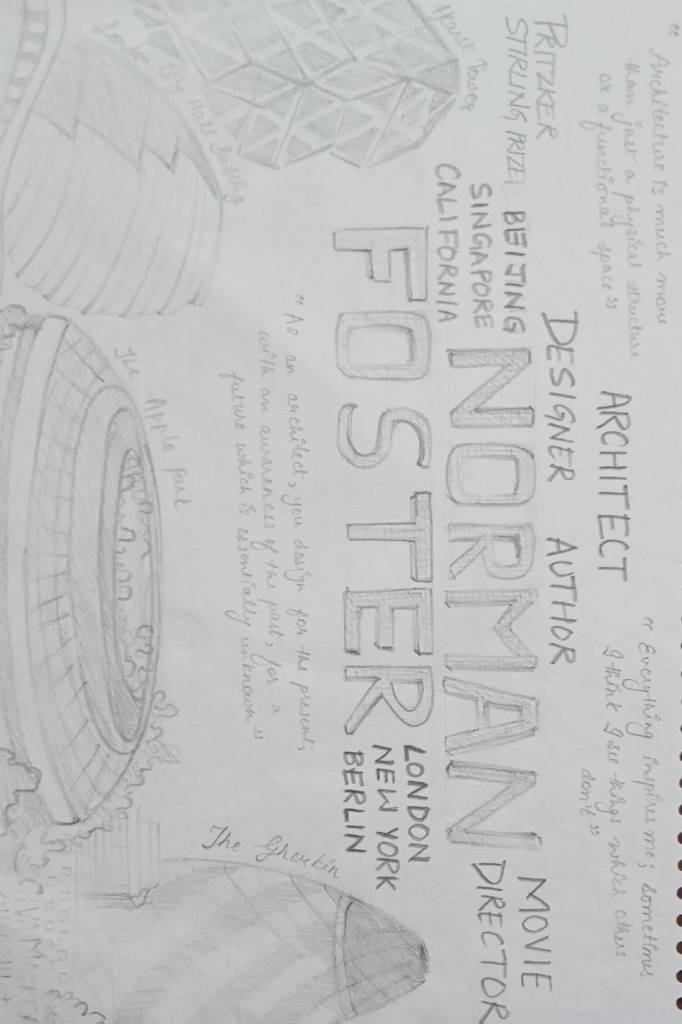 "Architecture is much more
than just a physical structure
or a functional space"
ARCHITECT
"Everything inspires me; sometimes
I think I see things which others
don't"
PRITZKER
STIRLING PRIZE
DESIGNER AUTHOR
MOVIE
DIRECTOR
BEIJING
SINGAPORE
CALIFORNIA
NORMAN
FOSTER
LONDON
NEW YORK
BERLIN
Hearst Tower
London City Hall Building
"As an architect, you design for the present,
with an awareness of the past, for a
future which is essentially unknown"
The Apple Park
The Gherkin